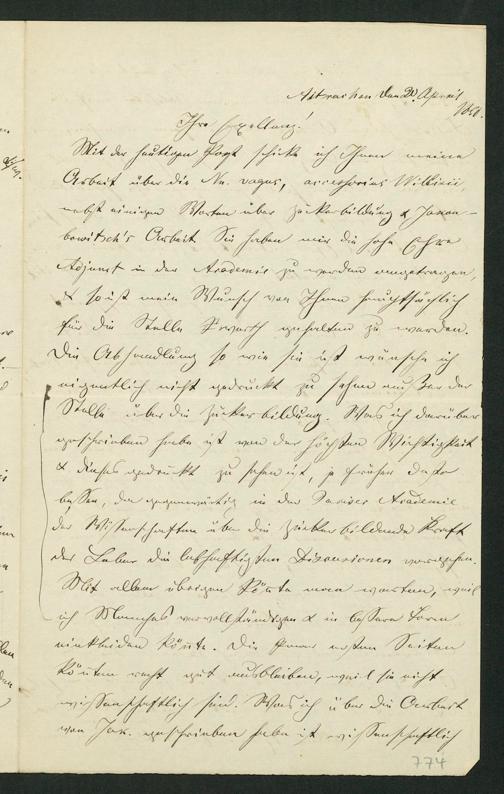 Astrachan den 20 April
Ihre Excellenz!
Mit der heutigen Post schicke ich Ihnen meine
Arbeit über die Nn. vagus, accessorius Willisii,
nebst einigen Worten über Zuckerbildung & Jakou-
bowitsch's Arbeit. Sie haben mir die hohe Ehre
Adjunct in der Academie zu werden angetragen,
& so ist mein Wunsch von Ihnen hauptsächlich
für die Stelle gehalten zu werden.
Die Abhandlung so wie sie ist wünsche ich
eigentlich nicht gedruckt zu sehen außer der
Stelle über die Zuckerbildung. Was ich darüber
geschrieben habe ist von der höchsten Wichtigkeit
& dieses gedruckt zu sehen ist, je früher desto
besser, da gegenwärtig in der Pariser Academie
der Wissenschaften über die zuckerbildende Kraft
der Leber die lebhaftigsten Discussionen vorgehen.
Mit allem übrigen könte man warten, weil
ich Manches vervollständigen & in bessere Form
einkleiden könte. Die ersten Seiten
könten recht gut ausbleiben, weil sie nicht
wissenschaftlich sind. Was ich über die Arbeit
von Jak. geschrieben habe ist wissenschaftlich
774